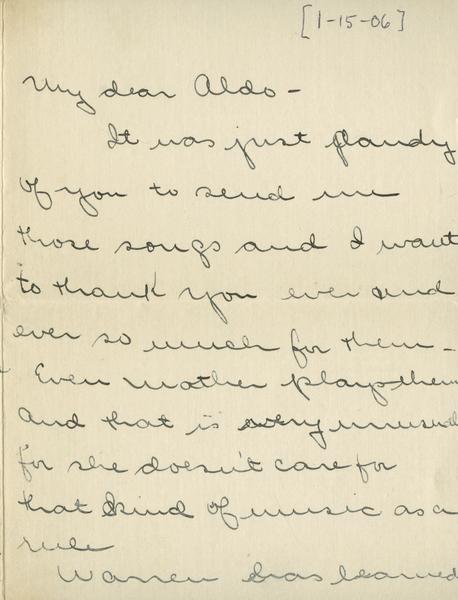 [1-15-06]
My dear Aldo -
It was just dandy
of you to send me
those songs and I want
to thank you ever and
ever so much for them -
Even mother plays them
and that is very unusual
for she doesn't care for
that kind of music as a
rule
Warren has learned